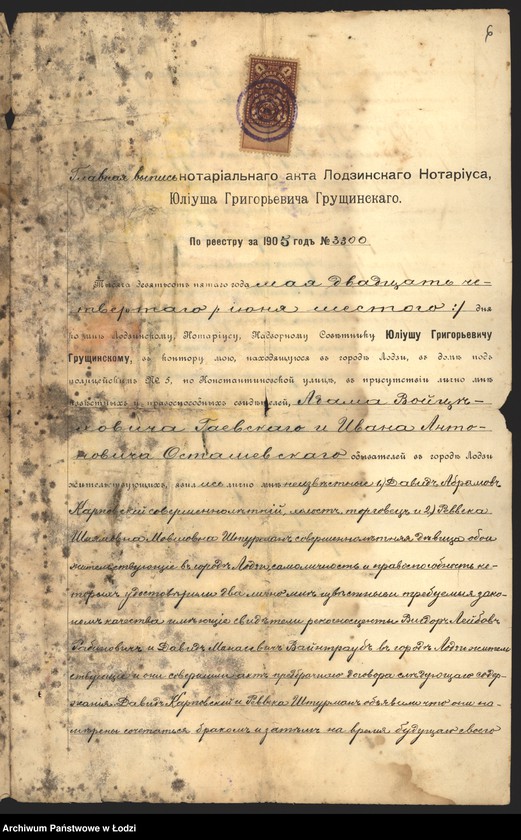 6
Главная выпись нотаріальнаго акта Лодзинскаго Нотаріуса,
Юліуша Григорьевича Грущинскаго.
По реестру за 1905 годъ № 3300
Тысяча девятьсотъ пятаго года мая двадцать че-
твертаго / іюня шестого :/ дня
ко мнѣ Лодзинскому, Нотаріусу, Надворному Совѣтнику Юліушу Григорьевичу
Грущинскому, въ контору мою, находящуюся въ городѣ Лодзи, въ домѣ подъ
полицейскимъ № 5, по Константиновской улицѣ, въ присутствіи лично мнѣ
извѣстныхъ и правоспособныхъ свидѣтелей, Адама Войцѣ-
ховича Гаевскаго и Ивана Анто-
новича Осташевскаго обывателей въ городѣ Лодзи
жительствующихъ, явились лично мнѣ неизвѣстные 1) Давидъ Абрамовъ
Карповскій совершеннолѣтній, холостъ, торговецъ и 2) Рывка
Шмулевна Мовшовна Штурманъ совершеннолѣтняя дѣвица оба
жительствующіе въ городѣ Лодзи, самоличность и правоспособность ко-
торыхъ удостовѣрили два лично мнѣ извѣстные и требуемыя зако-
номъ качества имѣющіе свидѣтели рекогносценты Викторъ Лейбовъ
Рабиновичъ и Давидъ Монасевичъ Вайнтраубъ въ городѣ Лодзи житель-
ствующіе и они совершили актъ предбрачнаго договора слѣдующаго содер-
жанія. Давидъ Карповскій и Рывка Штурманъ объявили что они на-
мѣрены сочетаться бракомъ и затѣмъ на время будущаго своего
Archiwum Państwowe w Łodzi